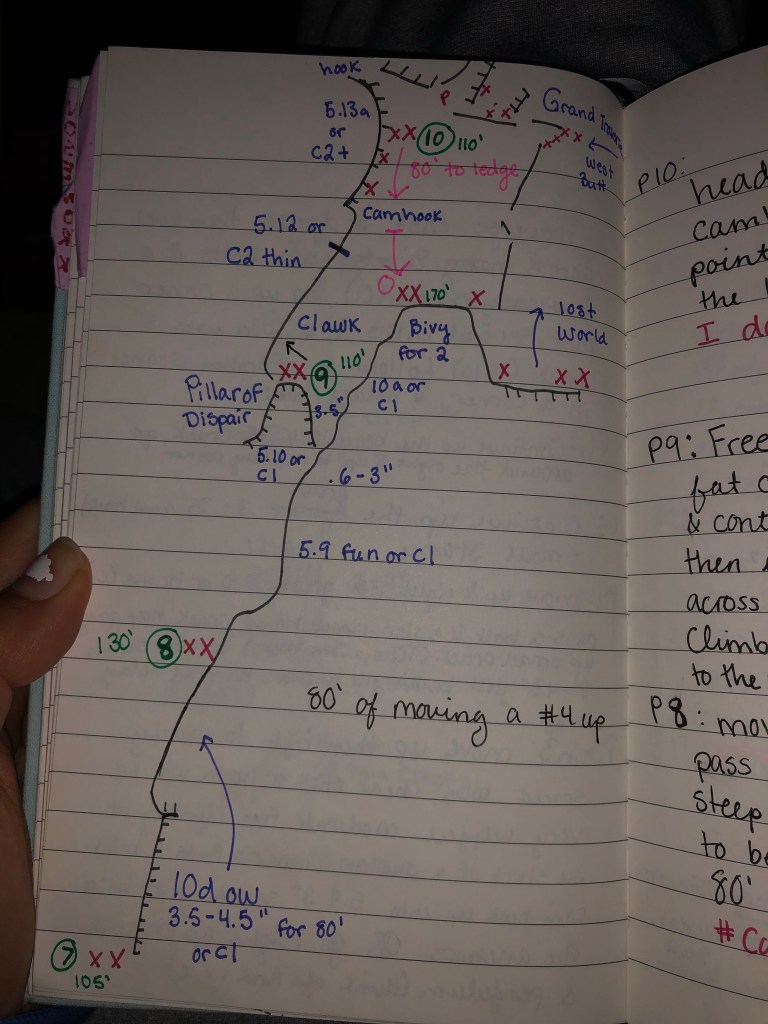 hook
P
Grand
5.13a
or
C2+
XX 10 110'
West
Butt
80' to ledge
Camhook
5.12 or
C2 thin
XX 170'
lost
World
Clawk
Bivy
for 2
XX 9 110'
Pillar of
Dispair
3.5"
10a or
C1
5.10 or
C1
.6-3"
5.9 fun or C1
130' 8 XX
80' of moving a #4 up
10d ow
3.5-4.5" for 80'
or C1
7 XX
105'
P10:
head
cam
point
the
I do
P9: Free
fat
& cont
then
across
Climb
to the
P8: mov
pass
steep
to be
80'